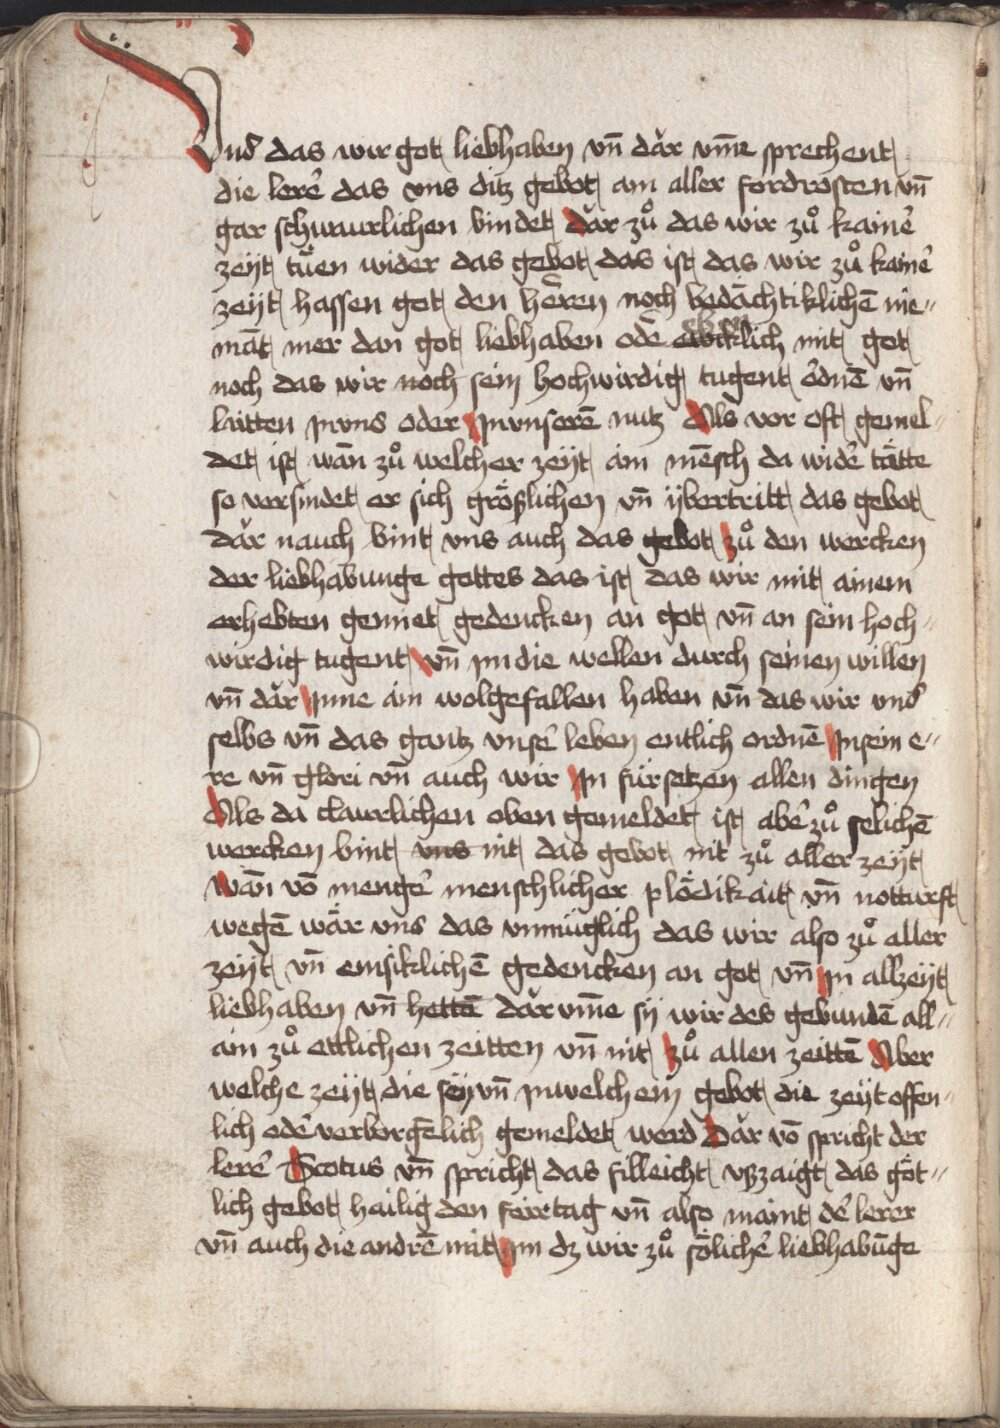 Vnd das wir got liebhaben vn̄ dǎr vm̄e sprechent
die lere᷑ das vns ditz gebot am aller fordrǒsten vn̄
gar schwaurlichen bindet dǎr zů das wir zů kaine᷑
zeÿt tüen wider das gebot das ist das wir zů kaine᷑
zeÿt hassen got den he᷑ren noch bedǎchtiklichē nie⸗
māt mer dan got liebhaben ode᷑ lich mit got
noch das wir noch sein hochwirdig tugent o᷑dnē vn̄
lǎitten jn vns oder jn vnserē nutz Als vor oft gemel⸗
det ist wān zů welcher zeÿt ǎin mēsch da wide᷑ tǎtte
so versündet er sich größlichen vn̄ übertritt das gebot
Dǎr nauch bint vns auch das gebot zů den wercken
der liebhabunge gottes das ist das wir mit ainem
erhebten gemiet gedencken an got vn̄ an sein hoch⸗
wirdig tugent vn̄ jm die wellen durch seinen willen
vn̄ dǎr jnne ǎin wolgefallen haben vn̄ das wir vns
selbs vn̄ das gantz vnse᷑ leben entlich ordnē jn sein e⸗
re vn̄ glori vn̄ auch wir jn für setzen allen dingen
Als da claurlichen oben gemeldet ist abe᷑ zů selichē
wercken bint vns nit das gebot nit zů aller zeÿt
Wān vō menge᷑ menschlicher plödikait vn̄ notturft
wegē wǎr vns das vnmüglich das wir also zů aller
zeÿt vn̄ emsiklichē gedencken an got vn̄ jn allzeÿt
liebhaben vn̄ hettē dǎr vm̄e sÿ wir des gebundē all⸗
ǎin zů ettlichen zeitten vn̄ nit zů allen zeittē Aber
welche zeÿt die seÿ vn̄ jn welchem gebot die zeÿt offen⸗
lich ode᷑ verborgēlich gemeldet werd Dǎr vō spricht der
lere᷑ Scotus vn̄ spricht das filleicht vßzaigt das göt⸗
lich gebot hailig den feirtag vn̄ also maint de᷑ lerer
vn̄ auch die andrē mit jm dz wir zů söliche᷑ liebhabūge